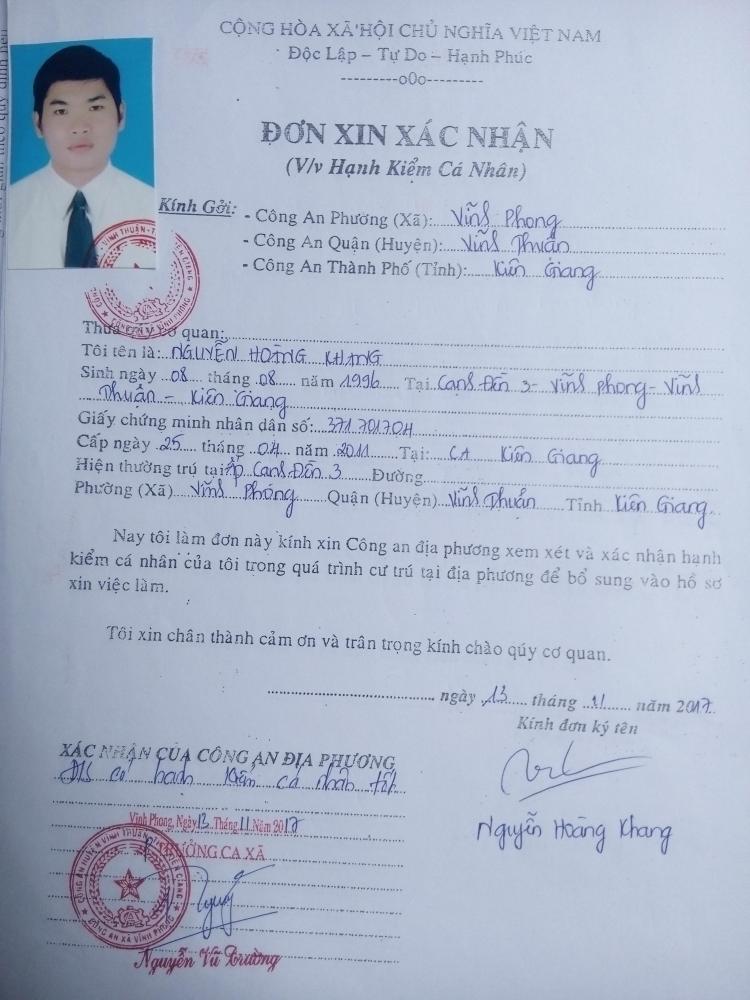 CỘNG HÒA XÃ HỘI CHỦ NGHĨA VIỆT NAM
Độc Lập – Tự Do – Hạnh Phúc
---------o0o---------
ĐƠN XIN XÁC NHẬN
(V/v Hạnh Kiểm Cá Nhân)
Kính Gởi: - Công An Phường (Xã): Vĩnh Phong
- Công An Quận (Huyện): Vĩnh Thuận
- Công An Thành Phố (Tỉnh): Kiên Giang
Thưa quý cơ quan:
Tôi tên là: NGUYỄN HOÀNG KHANG
Sinh ngày 08 tháng 08 năm 1996 Tại Cạnh Đền 3 - Vĩnh Phong - Vĩnh
Thuận - Kiên Giang
Giấy chứng minh nhân dân số: 371701704
Cấp ngày 25 tháng 04 năm 2011 Tại: CA Kiên Giang
Hiện thường trú tại: Ấp Cạnh Đền 3 Đường
Phường (Xã) Vĩnh Phong Quận (Huyện) Vĩnh Thuận Tỉnh Kiên Giang
Nay tôi làm đơn này kính xin Công an địa phương xem xét và xác nhận hạnh
kiểm cá nhân của tôi trong quá trình cư trú tại địa phương để bổ sung vào hồ sơ
xin việc làm.
Tôi xin chân thành cảm ơn và trân trọng kính chào qúy cơ quan.
, ngày 13 tháng 11 năm 2017
Kính đơn ký tên
XÁC NHẬN CỦA CÔNG AN ĐỊA PHƯƠNG
có hạnh kiểm cá nhân tốt
Vĩnh Phong, Ngày 13 Tháng 11 Năm 2017
TRƯỞNG CA XÃ
Nguyễn Hoàng Khang
CÔNG AN HUYỆN VĨNH THUẬN - T. KIÊN GIANG
CÔNG AN XÃ VĨNH PHONG
Nguyễn Vũ Trường